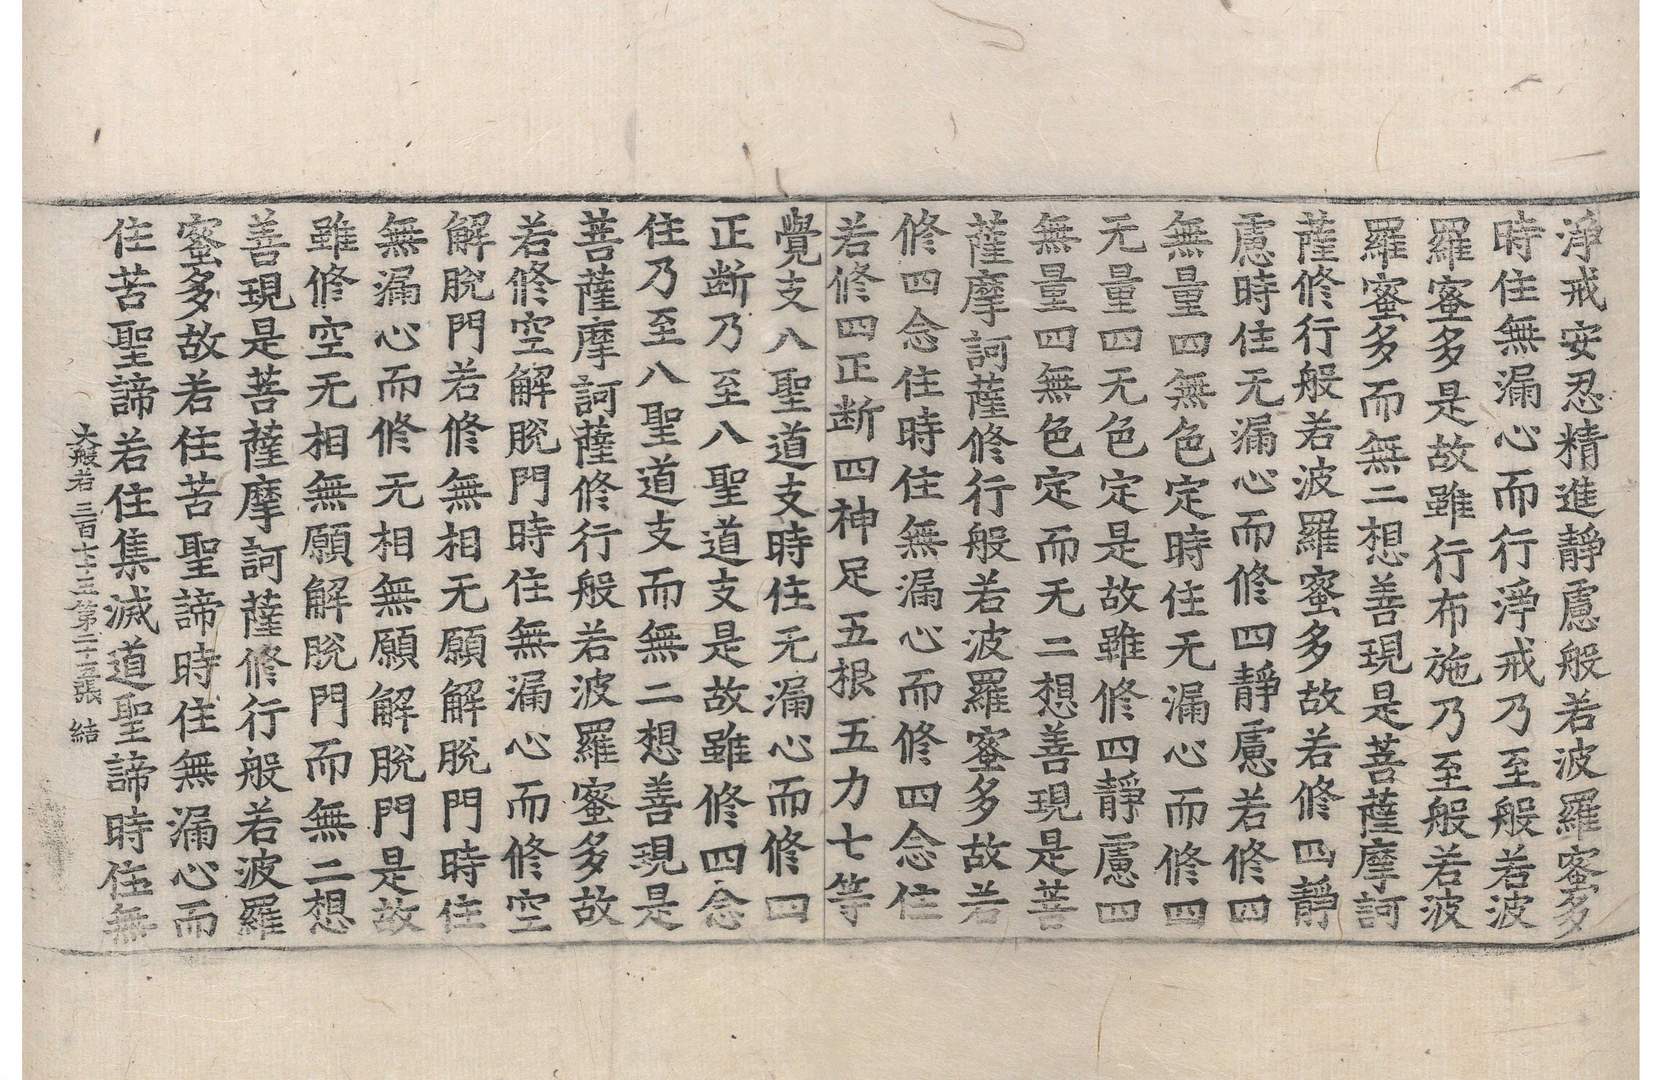 淨戒安忍精進靜慮般若波羅蜜多
時住無漏心而行淨戒乃至般若波
羅蜜多是故雖行布施乃至般若波
羅蜜多而無二想善現是菩薩摩訶
薩修行般若波羅蜜多故若修四靜
慮時住无漏心而修四靜慮若修四
無量四無色定時住无漏心而修四
无量四无色定是故雖修四靜慮四
無量四無色定而无二想善現是菩
薩摩訶薩修行般若波羅蜜多故若
修四念住時住無漏心而修四念住
若修四正断四神足五根五力七等
覺支八聖道支時住无漏心而修四
正断乃至八聖道支是故雖修四念
住乃至八聖道支而無二想善現是
菩薩摩訶薩修行般若波羅蜜多故
若修空解脫門時住無漏心而修空
解脫門若修無相无願解脫門時住
無漏心而修无相無願解脫門是故
雖修空无相無願解脫門而無二想
善現是菩薩摩訶薩修行般若波羅
蜜多故若住苦聖諦時住無漏心而
住苦聖諦若住集滅道聖諦時住無
大般若 三百七十五 第二十五張 結